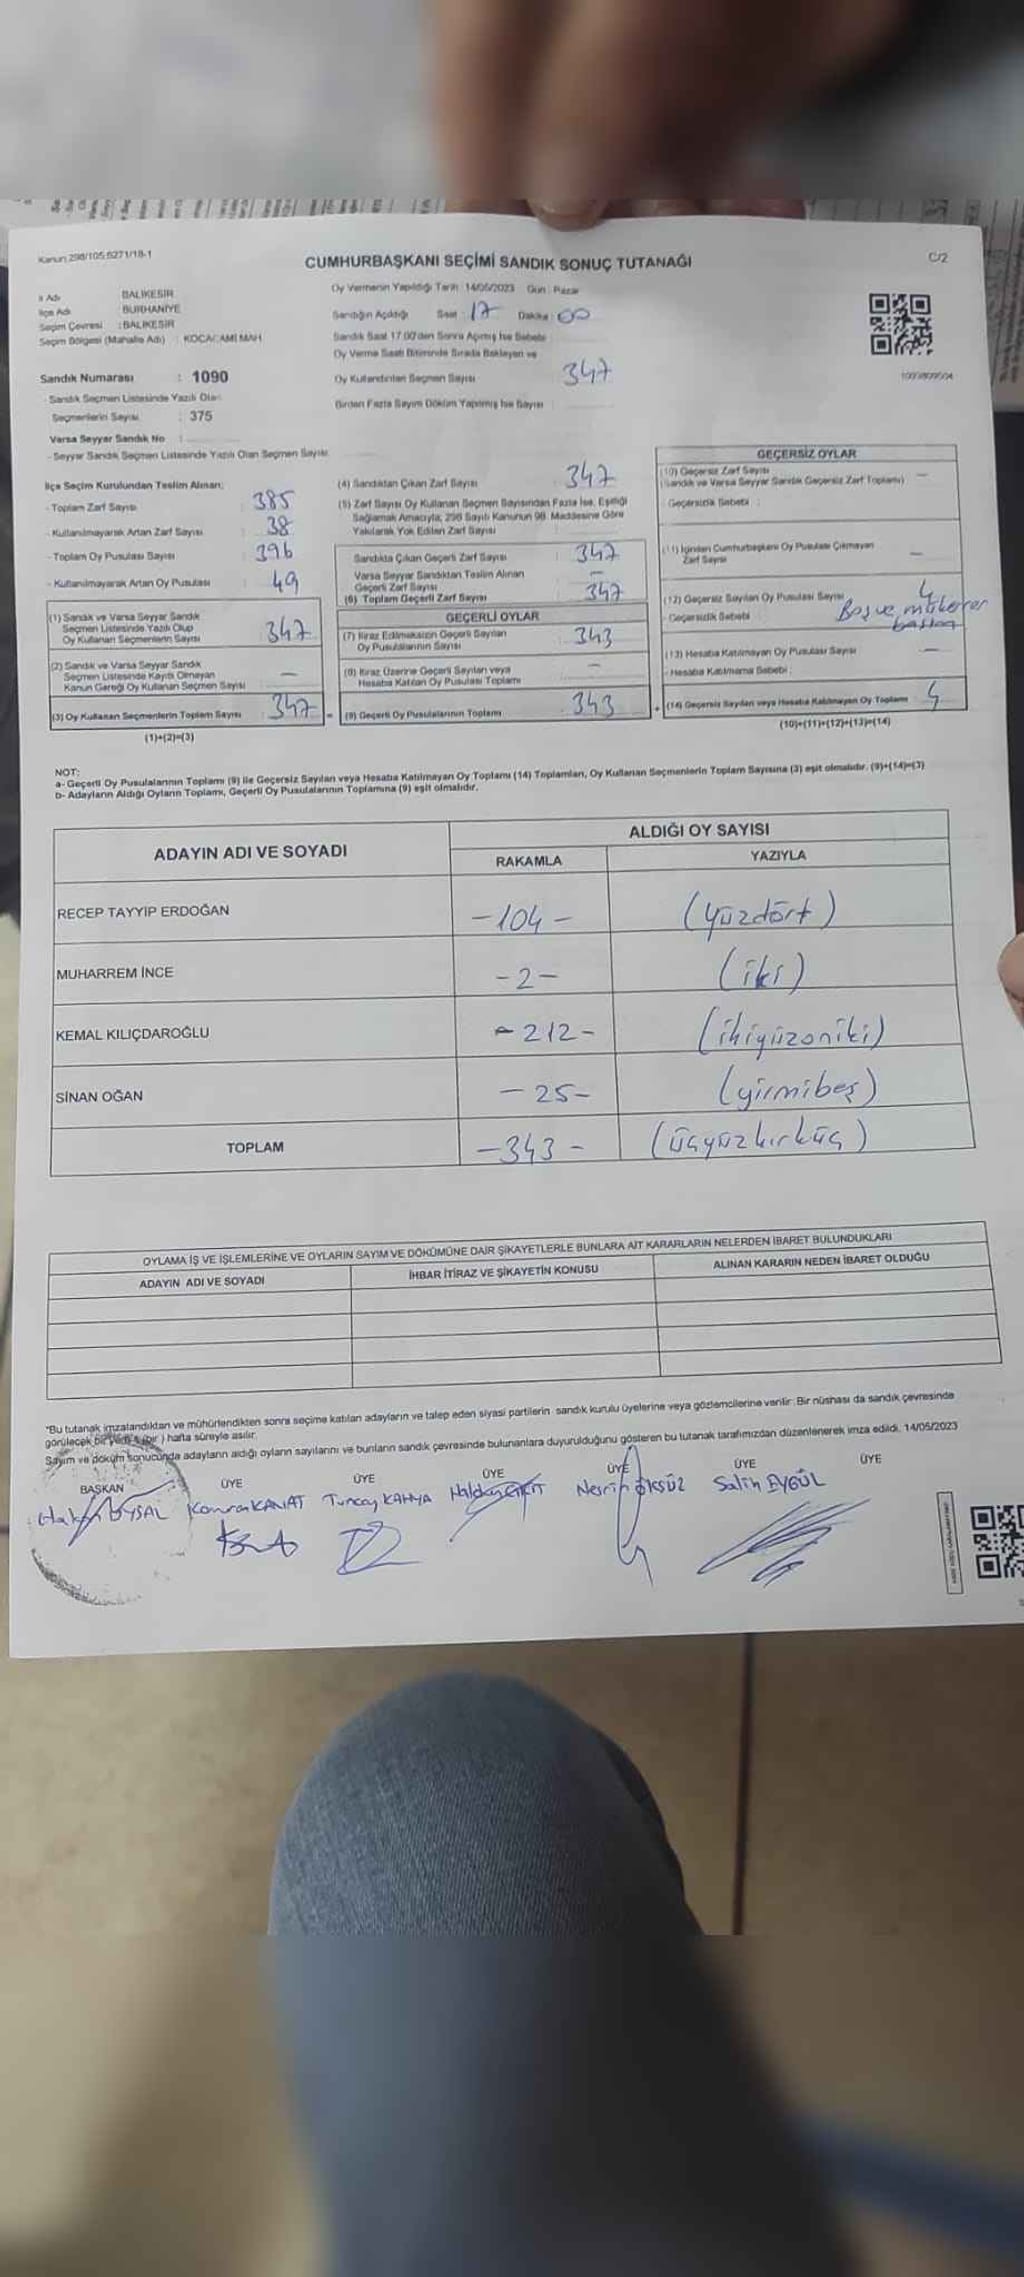 Kanun 298/105;6271/18-1
C/2
CUMHURBAŞKANI SEÇİMİ SANDIK SONUÇ TUTANAĞI
İl Adı BALIKESİR
İlçe Adı BURHANİYE
Seçim Çevresi : BALIKESİR
Seçim Bölgesi (Mahalle Adı) : KOCACAMİ MAH.
Sandık Numarası : 1090
- Sandık Seçmen Listesinde Yazılı Olan
Seçmenlerin Sayısı : 375
Varsa Seyyar Sandık No :
- Seyyar Sandık Seçmen Listesinde Yazılı Olan Seçmen Sayısı:
Oy Vermenin Yapıldığı Tarih : 14/05/2023 Gün : Pazar
Sandığın Açıldığı Saat : 17 Dakika : 00
Sandık Saat 17.00'den Sonra Açılmış İse Sebebi
Oy Verme Saati Bitiminde Sırada Bekleyen ve
Oy Kullandırılan Seçmen Sayısı 347
Birden Fazla Sayım Döküm Yapılmış İse Sayısı :
İlçe Seçim Kurulundan Teslim Alınan:
- Toplam Zarf Sayısı : 385
- Kullanılmayarak Artan Zarf Sayısı : 38
- Toplam Oy Pusulası Sayısı : 396
- Kullanılmayarak Artan Oy Pusulası : 49
(1) Sandık ve Varsa Seyyar Sandık
Seçmen Listesinde Yazılı Olup
Oy Kullanan Seçmenlerin Sayısı : 347
(2) Sandık ve Varsa Seyyar Sandık
Seçmen Listesinde Kayıtlı Olmayan
Kanun Gereği Oy Kullanan Seçmen Sayısı : —
(3) Oy Kullanan Seçmenlerin Toplam Sayısı : 347 =
(1)+(2)=(3)
(4) Sandıktan Çıkan Zarf Sayısı : 347
(5) Zarf Sayısı Oy Kullanan Seçmen Sayısından Fazla İse, Eşitliği
Sağlamak Amacıyla, 298 Sayılı Kanunun 98. Maddesine Göre
Yakılarak Yok Edilen Zarf Sayısı
Sandıkta Çıkan Geçerli Zarf Sayısı : 347
Varsa Seyyar Sandıktan Teslim Alınan
Geçerli Zarf Sayısı : —
(6) Toplam Geçerli Zarf Sayısı : 347
GEÇERLİ OYLAR
(7) İtiraz Edilmeksizin Geçerli Sayılan
Oy Pusulalarının Sayısı : 343
(8) İtiraz Üzerine Geçerli Sayılan veya
Hesaba Katılan Oy Pusulası Toplamı : —
(9) Geçerli Oy Pusulalarının Toplamı : 343 +
GEÇERSİZ OYLAR
(10) Geçersiz Zarf Sayısı —
(Sandık ve Varsa Seyyar Sandık Geçersiz Zarf Toplamı)
Geçersizlik Sebebi :
(11) İçinden Cumhurbaşkanı Oy Pusulası Çıkmayan
Zarf Sayısı —
(12) Geçersiz Sayılan Oy Pusulası Sayısı 4
Geçersizlik Sebebi : Boş ve mükerrer
(13) Hesaba Katılmayan Oy Pusulası Sayısı —
- Hesaba Katılmama Sebebi :
(14) Geçersiz Sayılan veya Hesaba Katılmayan Oy Toplamı : 4
(10)+(11)+(12)+(13)=(14)
NOT:
a- Geçerli Oy Pusulalarının Toplamı (9) ile Geçersiz Sayılan veya Hesaba Katılmayan Oy Toplamı (14) Toplamları, Oy Kullanan Seçmenlerin Toplam Sayısına (3) eşit olmalıdır. (9)+(14)=(3)
b- Adayların Aldığı Oyların Toplamı, Geçerli Oy Pusulalarının Toplamına (9) eşit olmalıdır.
ADAYIN ADI VE SOYADI
ALDIĞI OY SAYISI
RAKAMLA YAZIYLA
RECEP TAYYİP ERDOĞAN -104- (yüzdört)
MUHARREM İNCE -2- (iki)
KEMAL KILIÇDAROĞLU -212- (ikiyüzoniki)
SİNAN OĞAN -25- (yirmibeş)
TOPLAM -343- (üçyüzkırküç)
OYLAMA İŞ VE İŞLEMLERİNE VE OYLARIN SAYIM VE DÖKÜMÜNE DAİR ŞİKAYETLERLE BUNLARA AİT KARARLARIN NELERDEN İBARET BULUNDUKLARI
ADAYIN ADI VE SOYADI İHBAR İTİRAZ VE ŞİKAYETİN KONUSU ALINAN KARARIN NEDEN İBARET OLDUĞU
*Bu tutanak imzalandıktan ve mühürlendikten sonra seçime katılan adayların ve talep eden siyasi partilerin sandık kurulu üyelerine veya gözlemcilerine verilir. Bir nüshası da sandık çevresinde
görülecek bir yere 1 (bir) hafta süreyle asılır.
Sayım ve döküm sonucunda adayların aldığı oyların sayılarını ve bunların sandık çevresinde bulunanlara duyurulduğunu gösteren bu tutanak tarafımızdan düzenlenerek imza edildi. 14/05/2023
BAŞKAN ÜYE ÜYE ÜYE ÜYE ÜYE ÜYE
Hakan UYSAL Kamran KANAT Tuncay KAHYA Nesrin ÖKSÜZ Salih EYGÜL